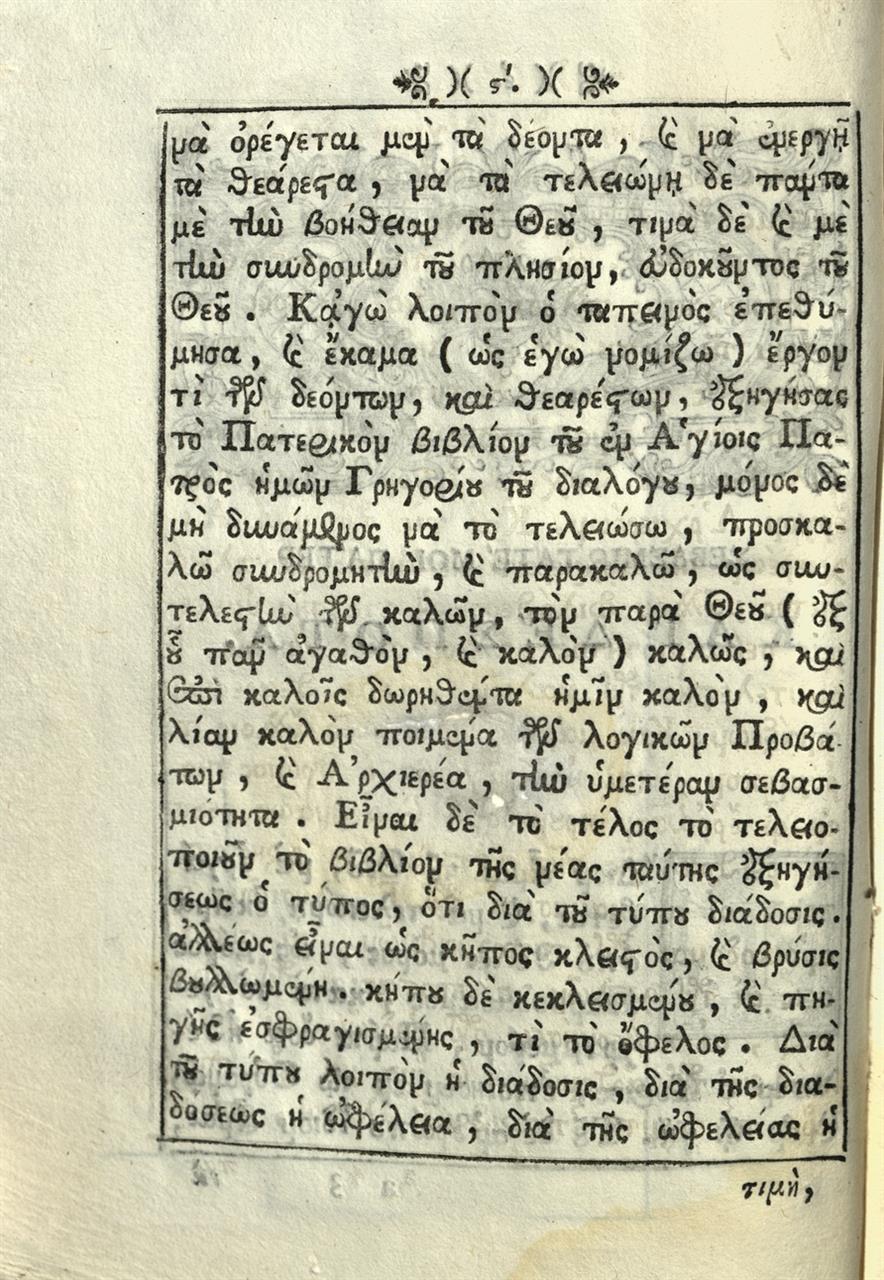 )( ϛʹ. )(
νὰ ὀρέγεται μὲν τὰ δέοντα, ϗ νὰ ἐνεργῇ
τὰ θεάρεϛα, νὰ τὰ τελειώνῃ δὲ πάντα
μὲ τὴν βοήθειαν τοῦ Θεοῦ, τινὰ δὲ ϗ μὲ
τὴν συνδρομὴν τοῦ πλησίον, εὐδοκοῦντος τοῦ
Θεοῦ. Κᾀγὼ λοιπὸν ὁ ταπεινὸς ἐπεθύ-
μησα, ϗ ἔκαμα ( ὡς ἐγὼ νομίζω ) ἔργον
τὶ τῶν δεόντων, καὶ θεαρέϛων, ἐξηγήσας
τὸ Πατερικὸν βιβλίον τοῦ ἐν Ἁγίοις Πα-
τρὸς ἡμῶν Γρηγορίου τοῦ διαλόγου, μόνος δὲ
μὴ δυνάμενος νὰ τὸ τελειώσω, προσκα-
λῶ συνδρομητὴν, ϗ παρακαλῶ, ὡς συν-
τελεϛὴν τῶν καλῶν, τὸν παρὰ Θεοῦ ( ἐξ
οὗ πᾶν ἀγαθὸν, ϗ καλὸν ) καλῶς, καὶ
ἐπὶ καλοῖς δωρηθέντα ἡμῖν καλὸν, καὶ
λίαν καλὸν ποιμένα τῶν λογικῶν Προβά-
των, ϗ Ἀρχιερέα, τὴν ὑμετέραν σεβασ-
μιότητα. Εἶναι δὲ τὸ τέλος τὸ τελειο-
ποιοῦν τὸ βιβλίον τῆς νέας ταύτης ἐξηγή-
σεως ὁ τύπος, ὅτι διὰ τοῦ τύπου διάδοσις.
ἀλλέως εἶναι ὡς κῆπος κλειϛὸς, ϗ βρύσις
βουλλωμένη. κήπου δὲ κεκλεισμένου, ϗ πη-
γῆς ἐσφραγισμένης, τὶ τὸ ὄφελος. Διὰ
τοῦ τύπου λοιπὸν ἡ διάδοσις, διὰ τῆς δια-
δόσεως ἡ ὠφέλεια, διὰ τῆς ὠφελείας ἡ
τιμὴ,